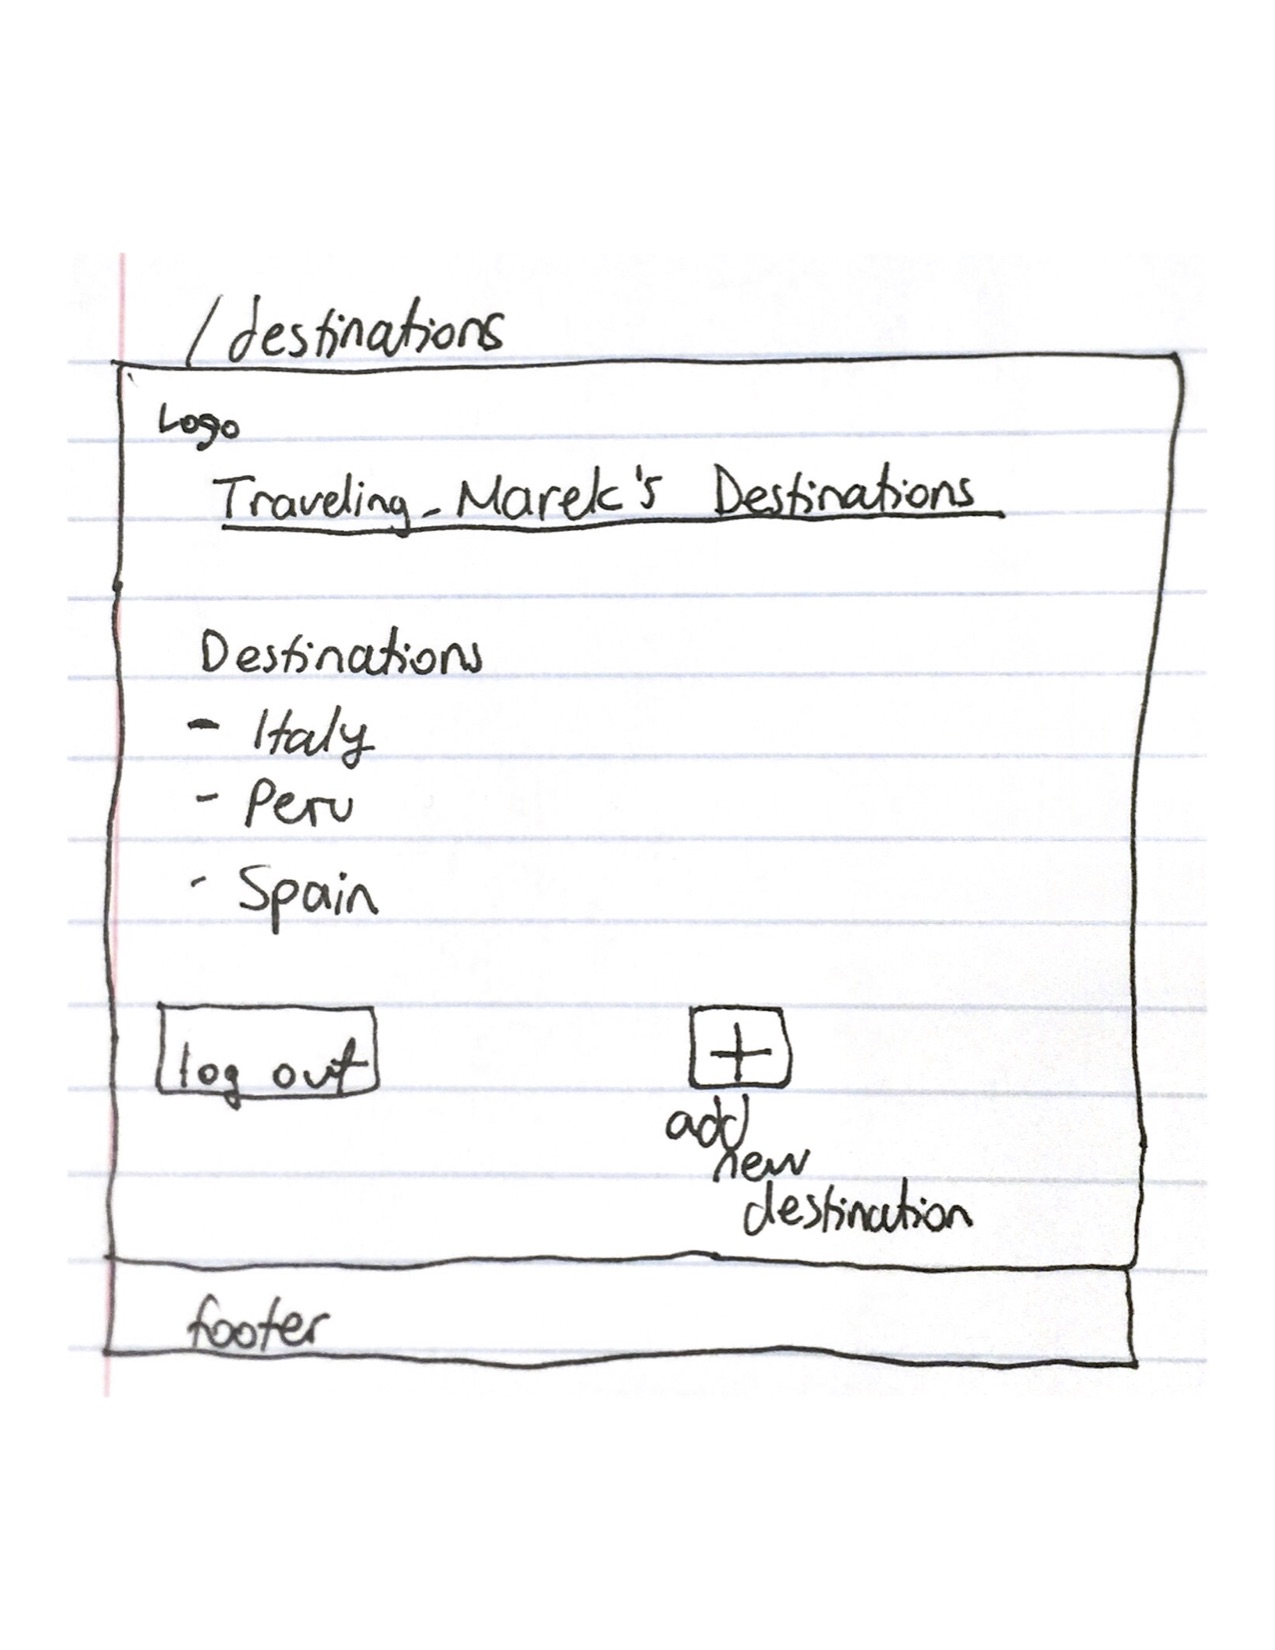 /destinations
Logo
Traveling_Marek's Destinations
Destinations
- Italy
- Peru
- Spain
log out
+
add
new
destination
footer